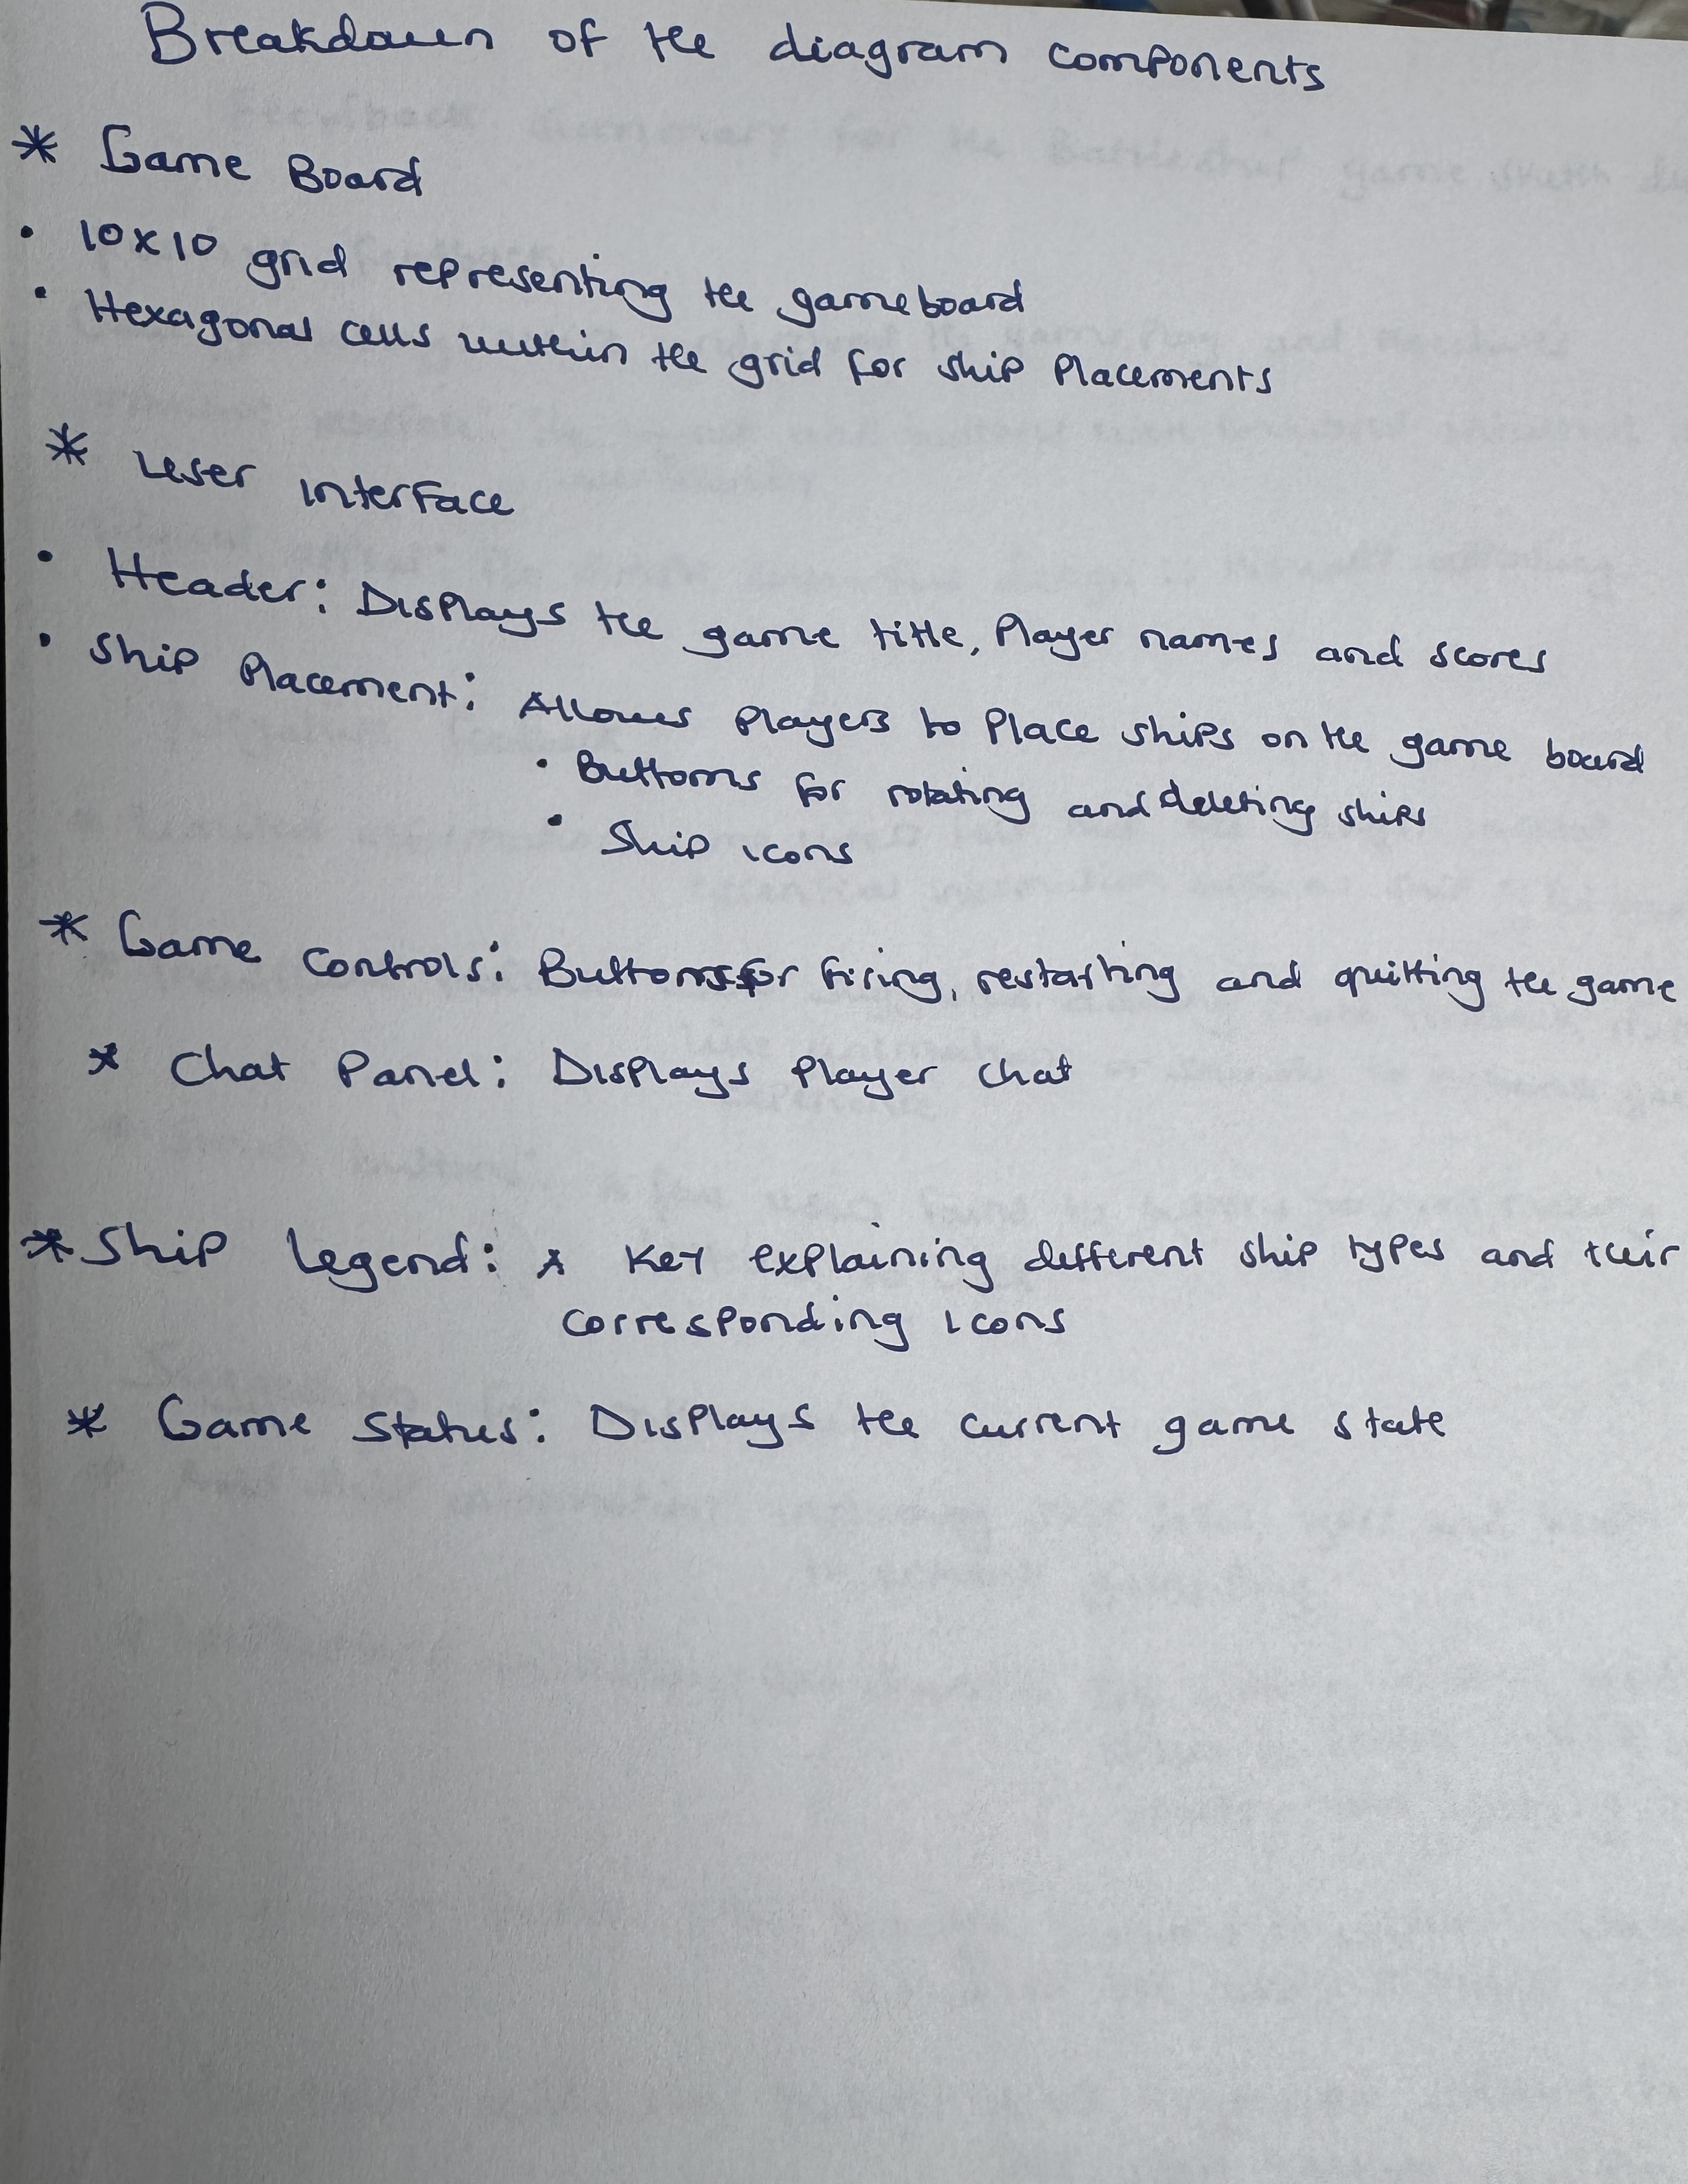 Breakdown of the diagram components
* Game Board
• 10x10 grid representing the gameboard
• Hexagonal cells within the grid for ship placements
* User interface
• Header: Displays the game title, Player names and scores
• Ship Placement: Allows players to place ships on the game board
• Buttons for rotating and deleting ships
• Ship icons
* Game Controls: Buttons for firing, restarting and quitting the game
* Chat Panel: Displays player chat
* Ship Legend: A key explaining different ship types and their
corresponding icons
* Game Status: Displays the current game state